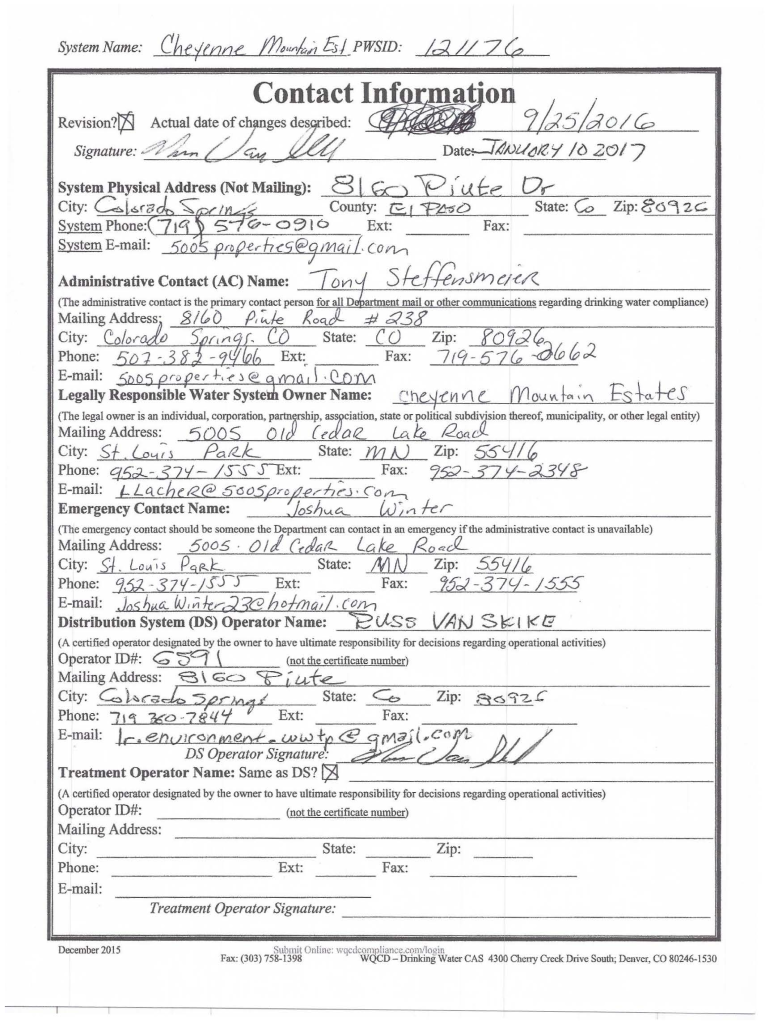 System Name: Cheyenne Mountain Est PWSID: 121176
Contact Information
Revision? ☒ Actual date of changes described: 9/25/2016
Signature: Date: JANUARY 10 2017
System Physical Address (Not Mailing): 8160 Piute Dr
City: Colorado Springs County: El PASO State: Co Zip: 80926
System Phone: (719) 576-0910 Ext: Fax:
System E-mail: 5005properties@gmail.com
Administrative Contact (AC) Name: Tony Steffensmeier
(The administrative contact is the primary contact person for all Department mail or other communications regarding drinking water compliance)
Mailing Address: 8160 Piute Road #238
City: Colorado Springs, CO State: CO Zip: 80926
Phone: 507-382-9466 Ext: Fax: 719-576-0662
E-mail: 5005properties@gmail.com
Legally Responsible Water System Owner Name: Cheyenne Mountain Estates
(The legal owner is an individual, corporation, partnership, association, state or political subdivision thereof, municipality, or other legal entity)
Mailing Address: 5005 Old Cedar Lake Road
City: St. Louis Park State: MN Zip: 55416
Phone: 952-374-1555 Ext: Fax: 952-374-2348
E-mail: LLacher@5005properties.com
Emergency Contact Name: Joshua Winter
(The emergency contact should be someone the Department can contact in an emergency if the administrative contact is unavailable)
Mailing Address: 5005 Old Cedar Lake Road
City: St. Louis Park State: MN Zip: 55416
Phone: 952-374-1555 Ext: Fax: 952-374-1555
E-mail: JoshuaWinter23@hotmail.com
Distribution System (DS) Operator Name: RUSS VAN SKIKE
(A certified operator designated by the owner to have ultimate responsibility for decisions regarding operational activities)
Operator ID#: 6591 (not the certificate number)
Mailing Address: 8160 Piute
City: Colorado Springs State: Co Zip: 80926
Phone: 719 360-7844 Ext: Fax:
E-mail: lr.environment.wwtp@gmail.com
DS Operator Signature:
Treatment Operator Name: Same as DS? ☒
(A certified operator designated by the owner to have ultimate responsibility for decisions regarding operational activities)
Operator ID#: (not the certificate number)
Mailing Address:
City: State: Zip:
Phone: Ext: Fax:
E-mail:
Treatment Operator Signature:
December 2015 Submit Online: wqcdcompliance.com/login
Fax: (303) 758-1398 WQCD – Drinking Water CAS 4300 Cherry Creek Drive South; Denver, CO 80246-1530